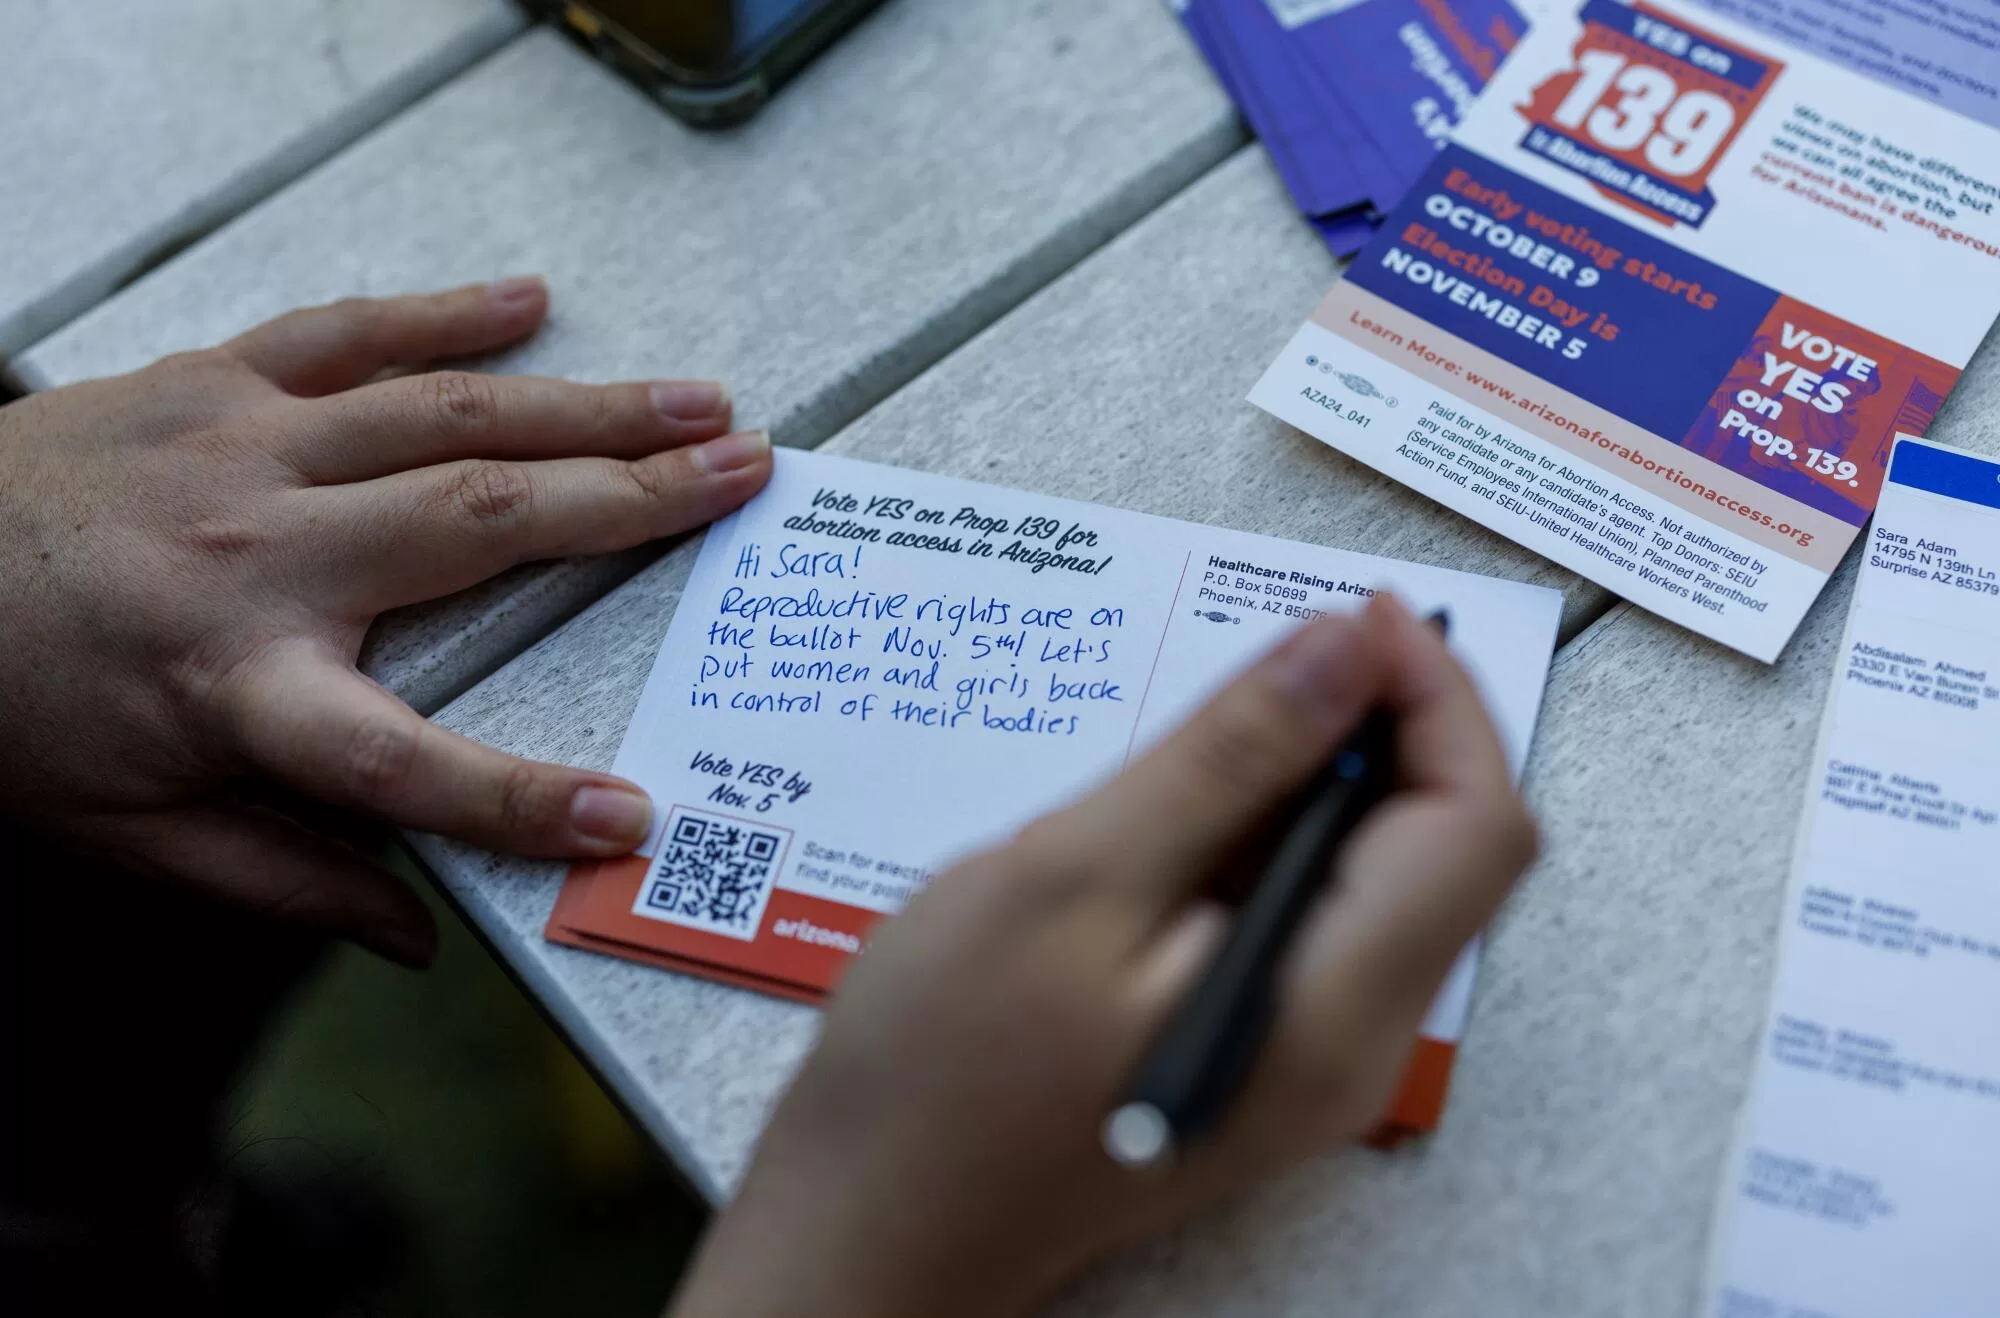 Vote YES on Prop 139 for
abortion access in Arizona!
Hi Sara!
Reproductive rights are on
the ballot Nov. 5th! Let's
put women and girls back
in control of their bodies
Vote YES by
Nov. 5
Scan for
find your
arizona.
Healthcare Rising
P.O. Box 50699
Phoenix, AZ
YES on
139
Abortion Access
We may have different
views on abortion, but
we can all agree the
current ban is dangerous
for Arizonans.
Early voting starts
OCTOBER 9
Election Day is
NOVEMBER 5
VOTE
YES
on
Prop. 139.
Learn More: www.arizonaforabortionaccess.org
AZA24_041
Paid for by Arizona for Abortion Access. Not authorized by
any candidate or any candidate's agent. Top Donors: SEIU
(Service Employees International Union), Planned Parenthood
Action Fund, and SEIU-United Healthcare Workers West.
Sara Adam
14795 N 139th Ln
Surprise AZ 85379
Abdisalam Ahmed
3330 E Van Buren St
Phoenix AZ 85008